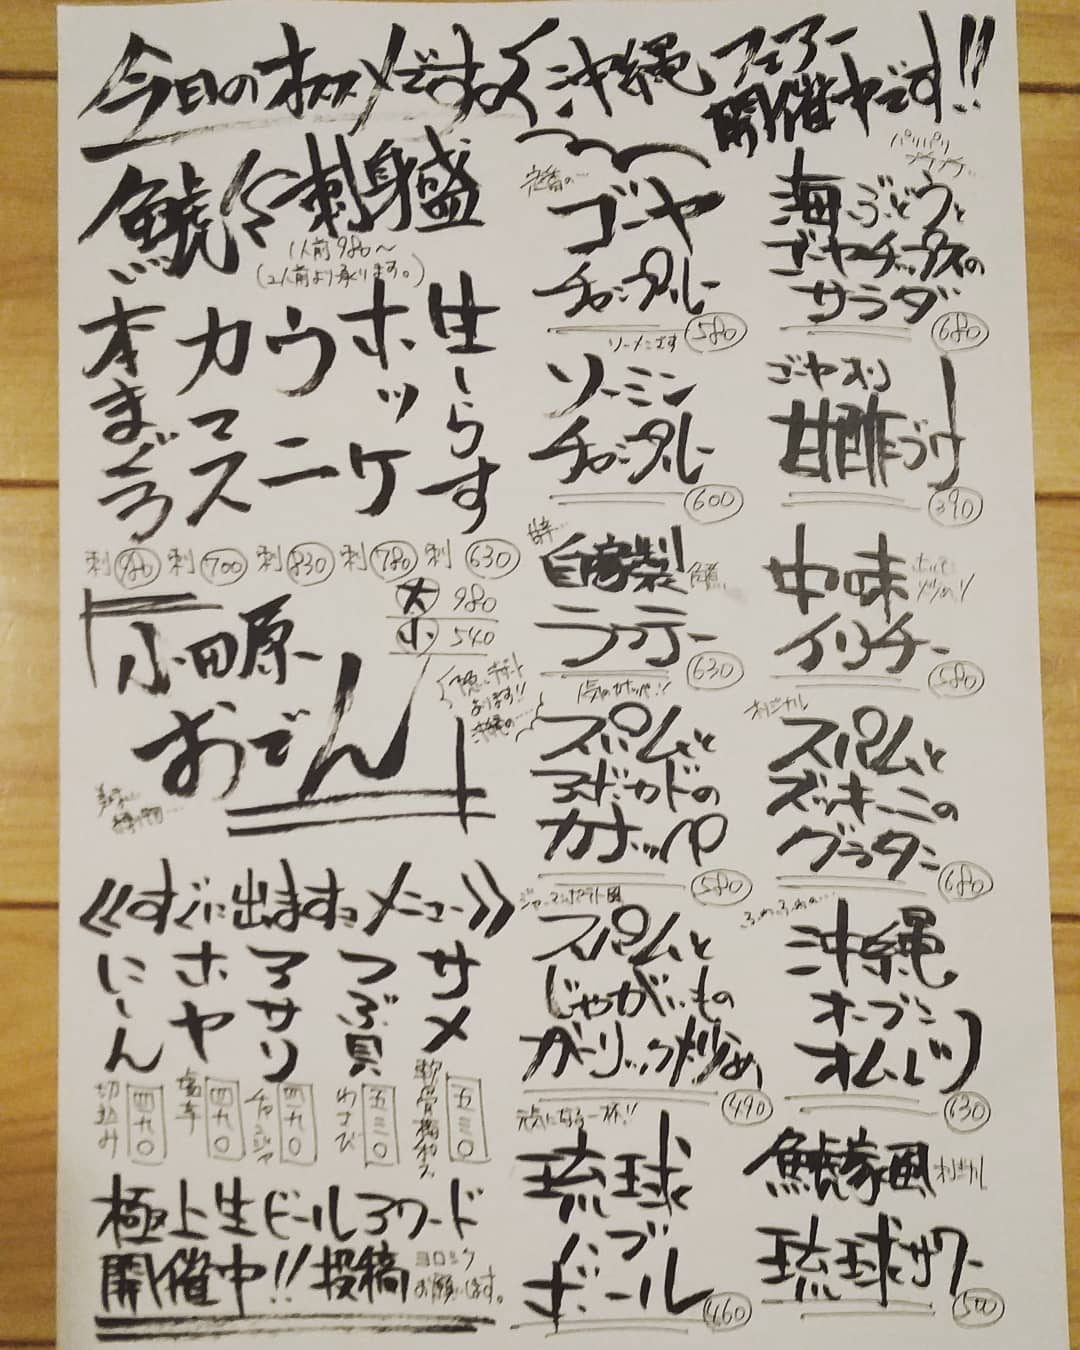 今日のオススメですよ〜
沖縄フェアー
開催中です!!
鯱々刺身盛
1人前980〜
(2人前より承ります。)
本まぐろ
刺 980
カマス
刺 700
ウニ
刺 830
ホッケ
刺 780
生しらす
刺 630
小田原
おでん
大 980
小 540
《すぐに出ますよメニュー》
にしん
切込み
四九〇
ホヤ
塩辛
四九〇
アサリ
チャンジャ
四九〇
つぶ貝
わさび
五三〇
サメ
軟骨梅和え
五三〇
極上生ビールアワード
開催中!!投稿
ヨロシク
お願いします。
定番の…
ゴーヤ
チャンプルー
580
ソーメンです
ソーミン
チャンプルー
600
自家製
ラフテー
630
人気のカナッペ!!
スパムと
アボカドの
カナッペ
580
ジャーマンポテト風
スパムと
じゃがいもの
ガーリック炒め
490
元気になる一杯!!
琉球
ハブ
ボール
460
パリパリ
海ぶどうと
ゴーヤチップスの
サラダ
680
ゴーヤ
甘酢づけ
390
中味
イリチー
580
オリジナル
スパムと
ズッキーニの
グラタン
680
ふわふわの…
沖縄
オープン
オムレツ
630
鯱家風
オリジナル
琉球サワー
500